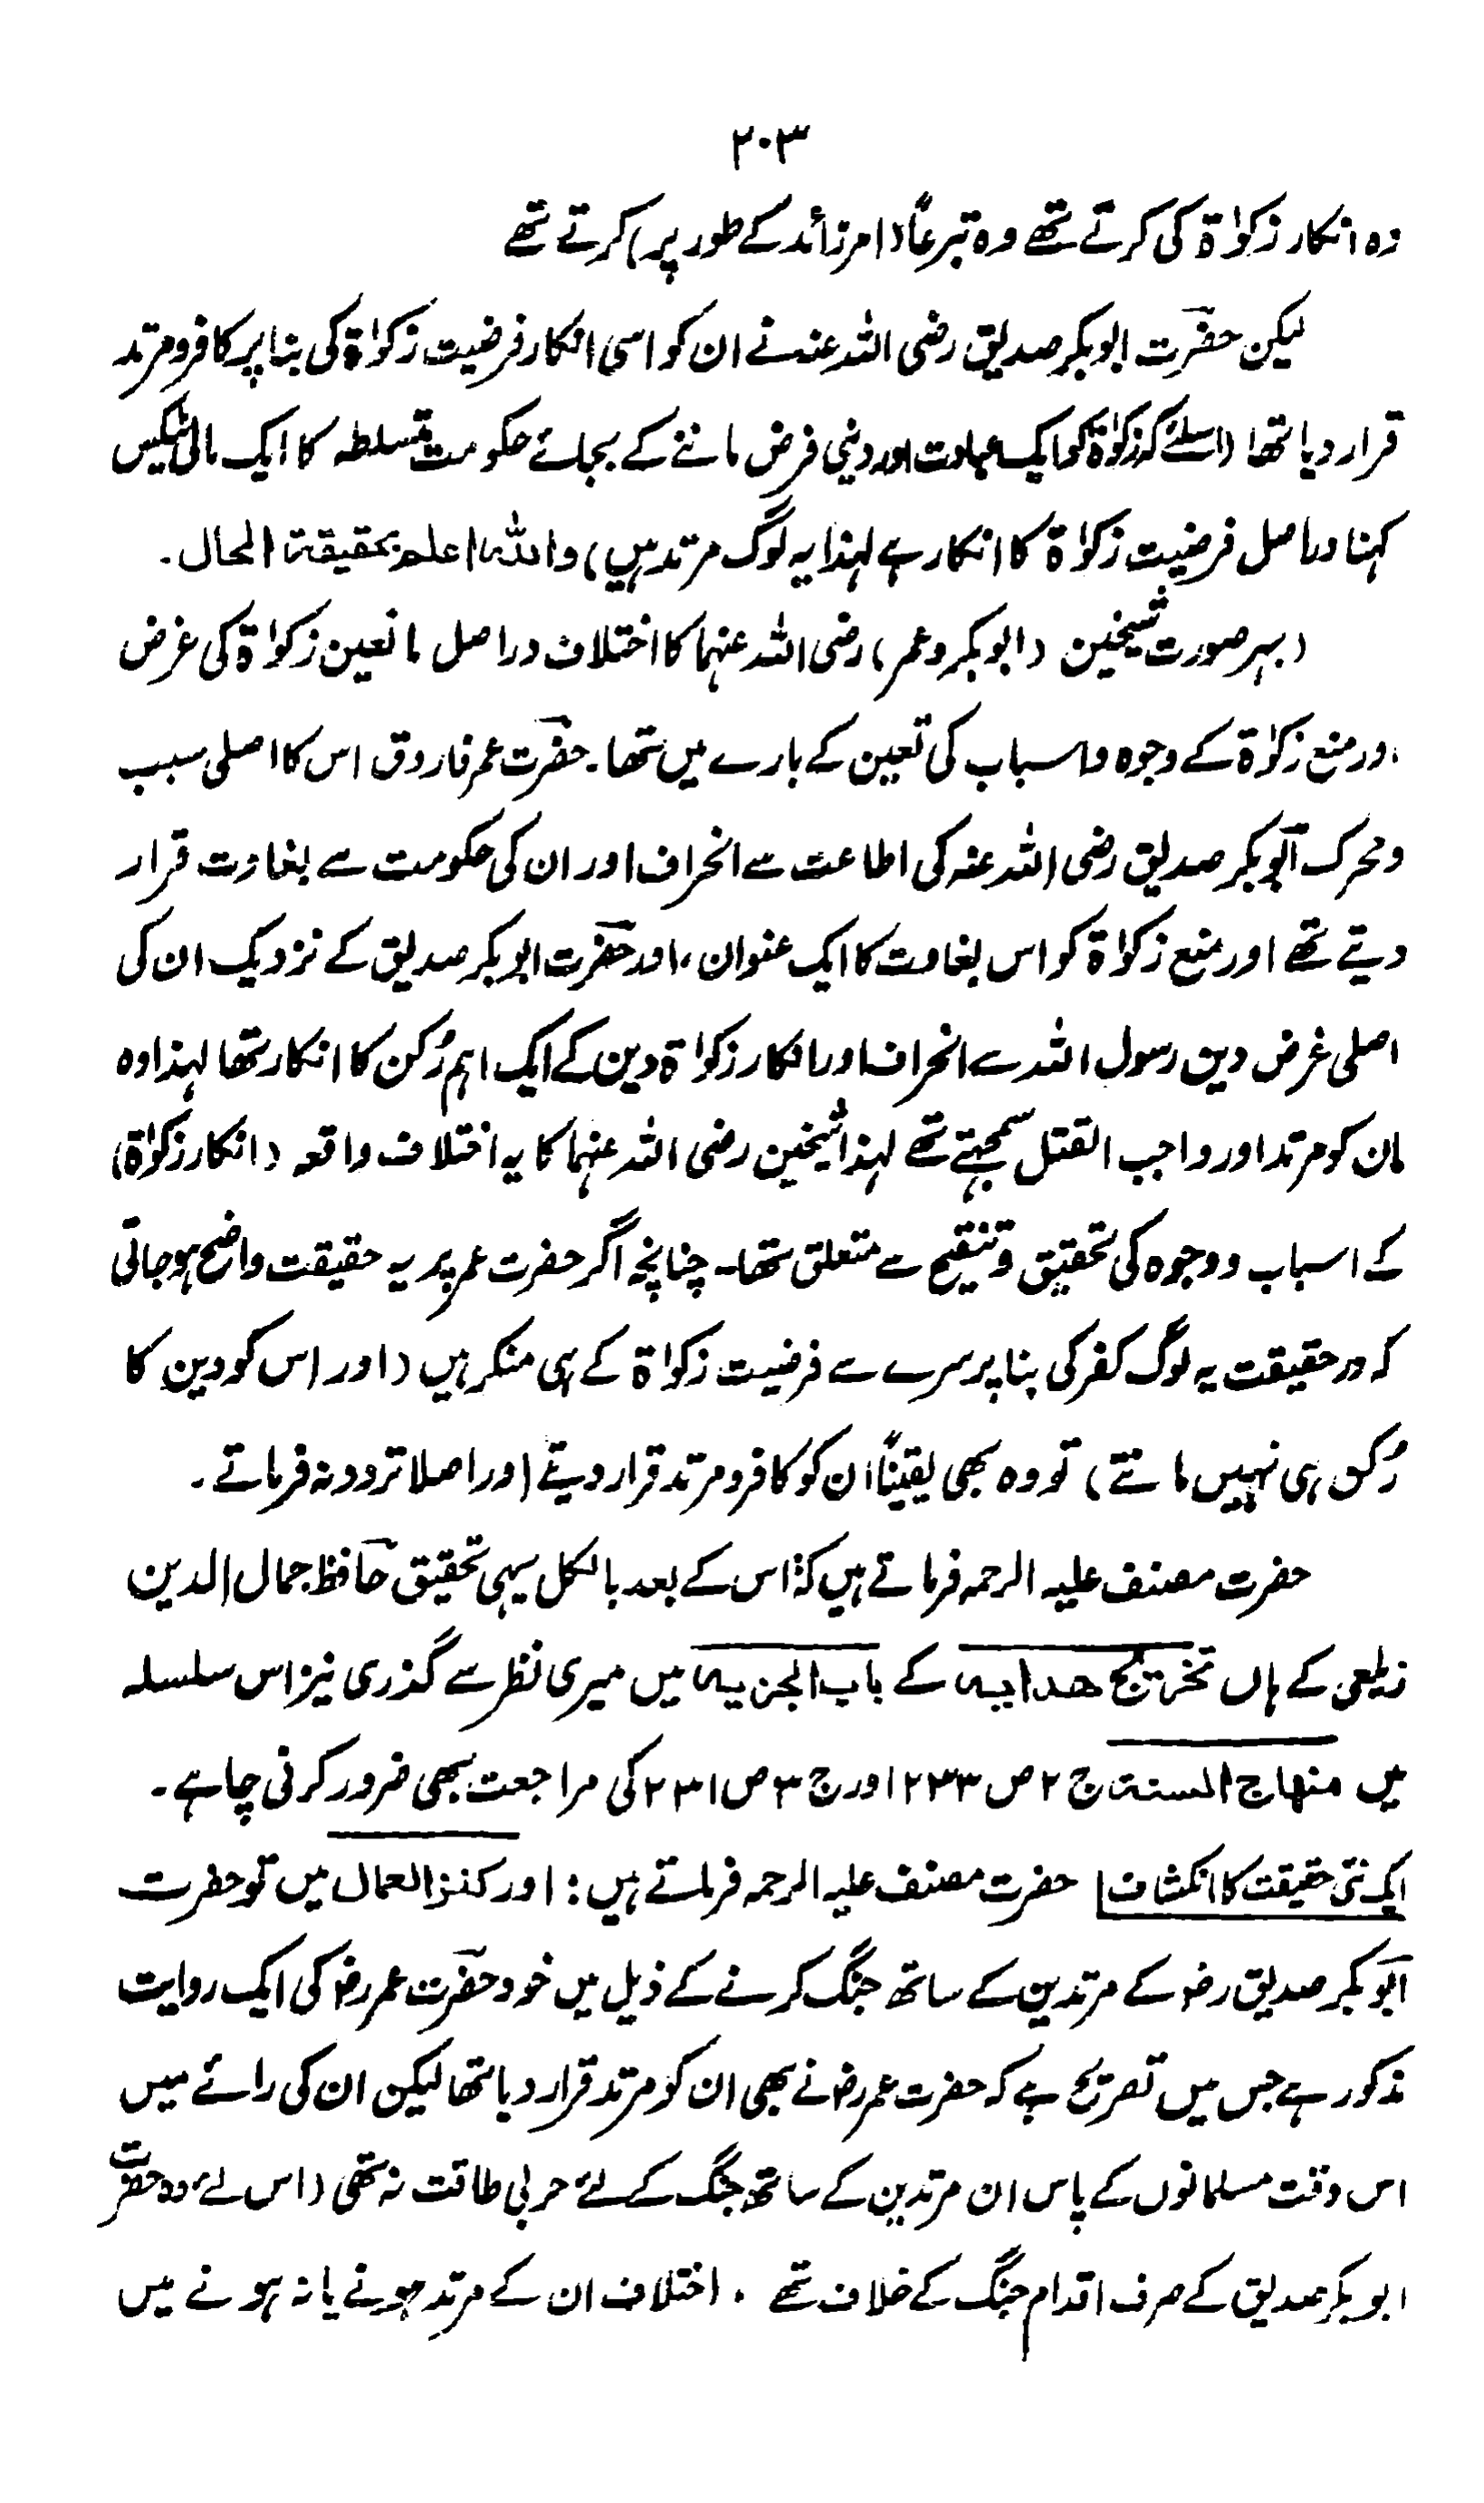 ۲۰۳
وہ انکار زکوٰۃ کی کرتے تھے وہ تبرعاً (امر زائد کے طور پر) کرتے تھے
لیکن حضرت ابوبکر صدیق رضی اللہ عنہ نے ان کو اسی انکار فرضیت زکوٰۃ کی بنا پر کافر و مرتد
قرار دیا تھا (اسلئے کہ زکوٰۃ کو ایک عبادت اور دینی فرض ماننے کے بجائے حکومت متسلطہ کا ایک مالی ٹیکس
کہنا دراصل فرضیت زکوٰۃ کا انکار ہے لہذا یہ لوگ مرتد ہیں) واللہ اعلم بحقیقۃ الحال۔
(بہر صورت شیخین (ابوبکر و عمر) رضی اللہ عنہما کا اختلاف دراصل مانعین زکوٰۃ کی غرض
اور منع زکوٰۃ کے وجوہ و اسباب کی تعیین کے بارے میں تھا۔ حضرت عمر فاروق اس کا اصلی سبب
و محرک ابوبکر صدیق رضی اللہ عنہ کی اطاعت سے انحراف اور ان کی حکومت سے بغاوت قرار
دیتے تھے اور منع زکوٰۃ کو اس بغاوت کا ایک عنوان، اور حضرت ابوبکر صدیق کے نزدیک ان کی
اصلی غرض دین رسول اللہ سے انحراف اور انکار زکوٰۃ دین کے ایک اہم رُکن کا انکار تھا لہذا وہ
ان کو مرتد اور واجب القتل سمجھتے تھے لہذا شیخین رضی اللہ عنہما کا یہ اختلاف واقعہ (انکار زکوٰۃ)
کے اسباب و وجوہ کی تحقیق و تنقیح سے متعلق تھا۔ چنانچہ اگر حضرت عمر پر یہ حقیقت واضح ہو جاتی
کہ درحقیقت یہ لوگ کفر کی بنا پر سرے سے فرضیت زکوٰۃ کے ہی منکر ہیں (اور اس کو دین کا
رُکن ہی نہیں مانتے) تو وہ بھی یقیناً ان کو کافر و مرتد قرار دیتے (اور اصلا تردد نہ فرماتے۔
حضرت مصنف علیہ الرحمہ فرماتے ہیں کہ: اس کے بعد بالکل یہی تحقیق حافظ جمال الدین
زیلعی کے ہاں تخریج ھدایہ کے باب الجزیہ میں میری نظر سے گذری نیز اس سلسلہ
میں منھاج السنۃ ج ۲ ص ۲۳۳ اور ج ۳ ص ۲۳۱ کی مراجعت بھی ضرور کرنی چاہے۔
ایک نئی حقیقت کا انکشاف | حضرت مصنف علیہ الرحمہ فرماتے ہیں: اور کنز العمال میں تو حضرت
ابوبکر صدیق رض کے مرتدین کے ساتھ جنگ کرنے کے ذیل میں خود حضرت عمر رض کی ایک روایت
مذکور ہے جس میں تصریح ہے کہ حضرت عمر رض نے بھی ان کو مرتد قرار دیا تھا لیکن ان کی رائے میں
اس وقت مسلمانوں کے پاس ان مرتدین کے ساتھ جنگ کے لئے حربی طاقت نہ تھی (اس لے وہ حضرت
ابوبکر صدیق کے صرف اقدام جنگ کے خلاف تھے۔ اختلاف ان کے مرتد ہونے یا نہ ہونے میں